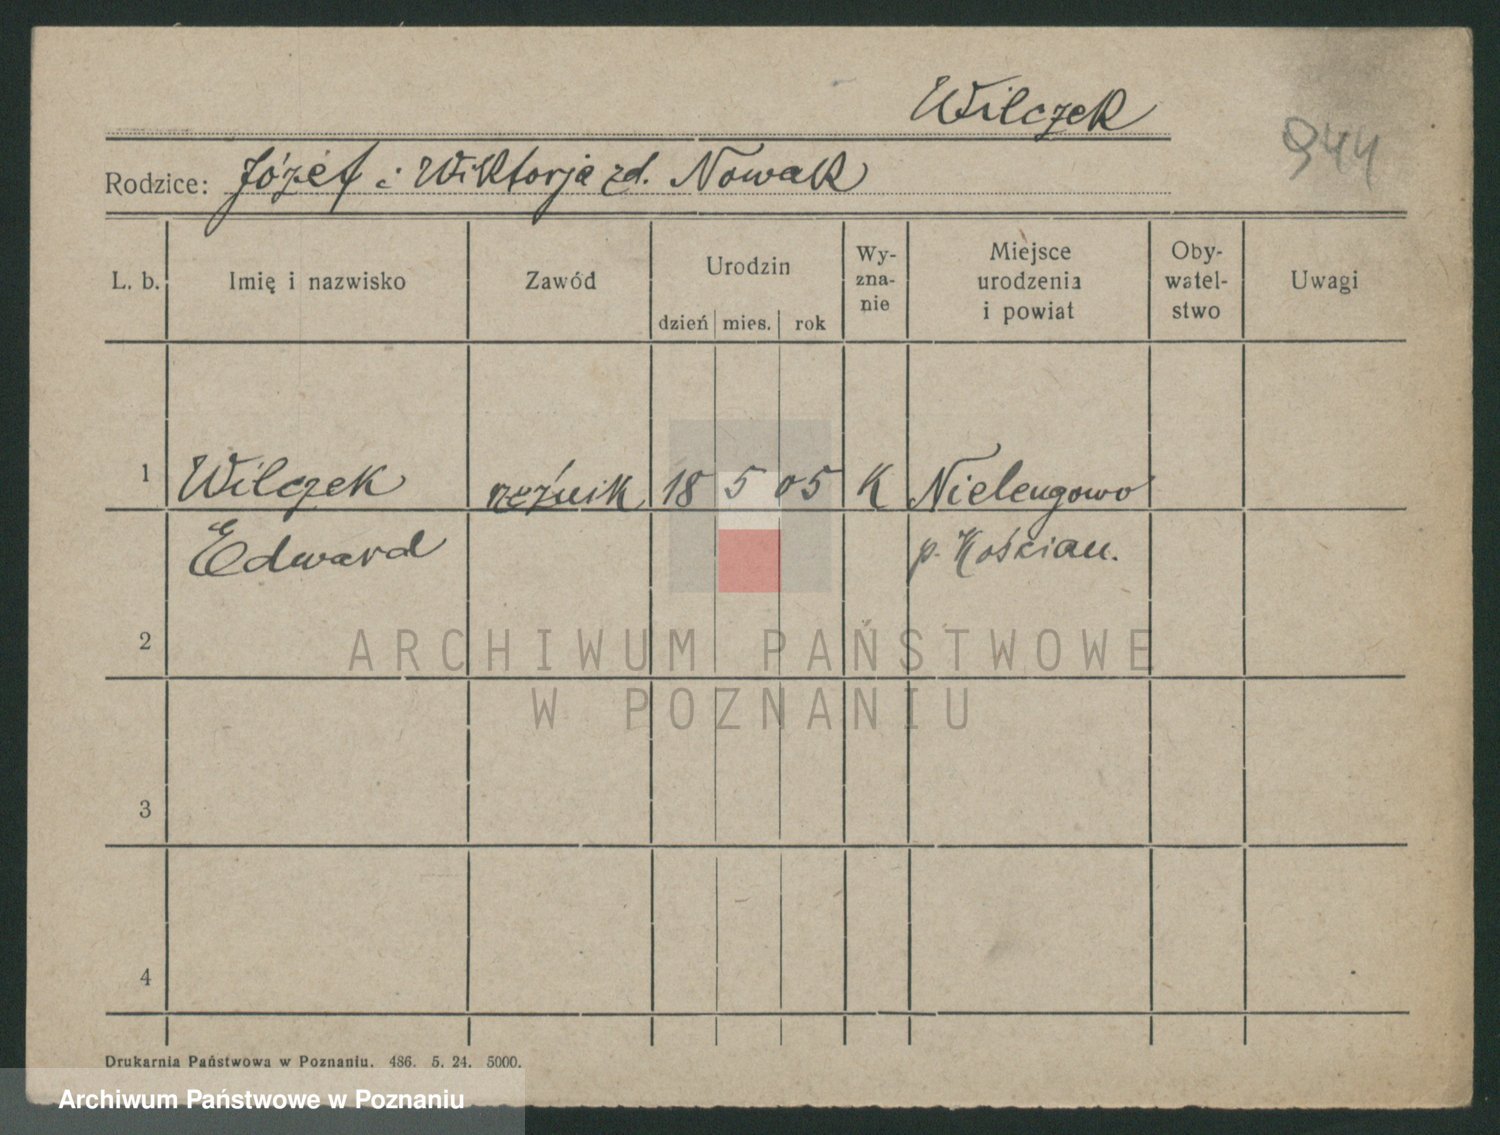 Wilczek
944
Rodzice: Józef i Wiktorja zd. Nowak
L. b. Imię i nazwisko Zawód Urodzin dzień mies. rok Wy-zna-nie Miejsce urodzenia i powiat Oby-watel-stwo Uwagi
1 Wilczek rzeźnik 18 5 05 K Nielengowo
Edward p. Kościan.
2
ARCHIWUM PAŃSTWOWE
W POZNANIU
3
4
Drukarnia Państwowa w Poznaniu. 486. 5. 24. 5000.
Archiwum Państwowe w Poznaniu